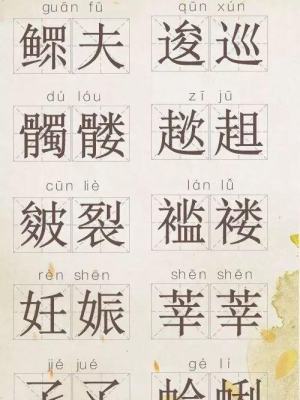 guān fū qūn xún
鳏夫 逡巡
dú lóu zī jū
髑髅 趑趄
cūn liè lán lǚ
皴裂 褴褛
rèn shēn shēn shēn
妊娠 莘莘
jié jué gé lí
孑孓 蛤蜊